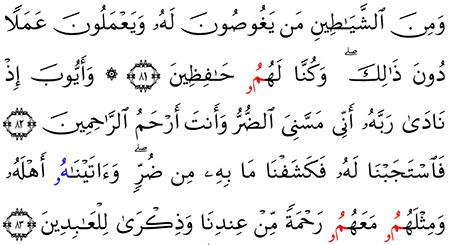 وَمِنَ ٱلشَّيَـٰطِينِ مَن يَغُوصُونَ لَهُۥ وَيَعۡمَلُونَ عَمَلٗا
دُونَ ذَٰلِكَۖ وَكُنَّا لَهُمُۥ حَـٰفِظِينَ ﴿٨١﴾ ۞ وَأَيُّوبَ إِذۡ
نَادَىٰ رَبَّهُۥٓ أَنِّي مَسَّنِيَ ٱلضُّرُّ وَأَنتَ أَرۡحَمُ ٱلرَّـٰحِمِينَ ﴿٨٢﴾
فَٱسۡتَجَبۡنَا لَهُۥ فَكَشَفۡنَا مَا بِهِۦ مِن ضُرّٖۖ وَءَاتَيۡنَـٰهُۥ أَهۡلَهُۥ
وَمِثۡلَهُمُۥ مَعَهُمُۥ رَحۡمَةٗ مِّنۡ عِندِنَا وَذِكۡرَىٰ لِلۡعَـٰبِدِينَ ﴿٨٣﴾